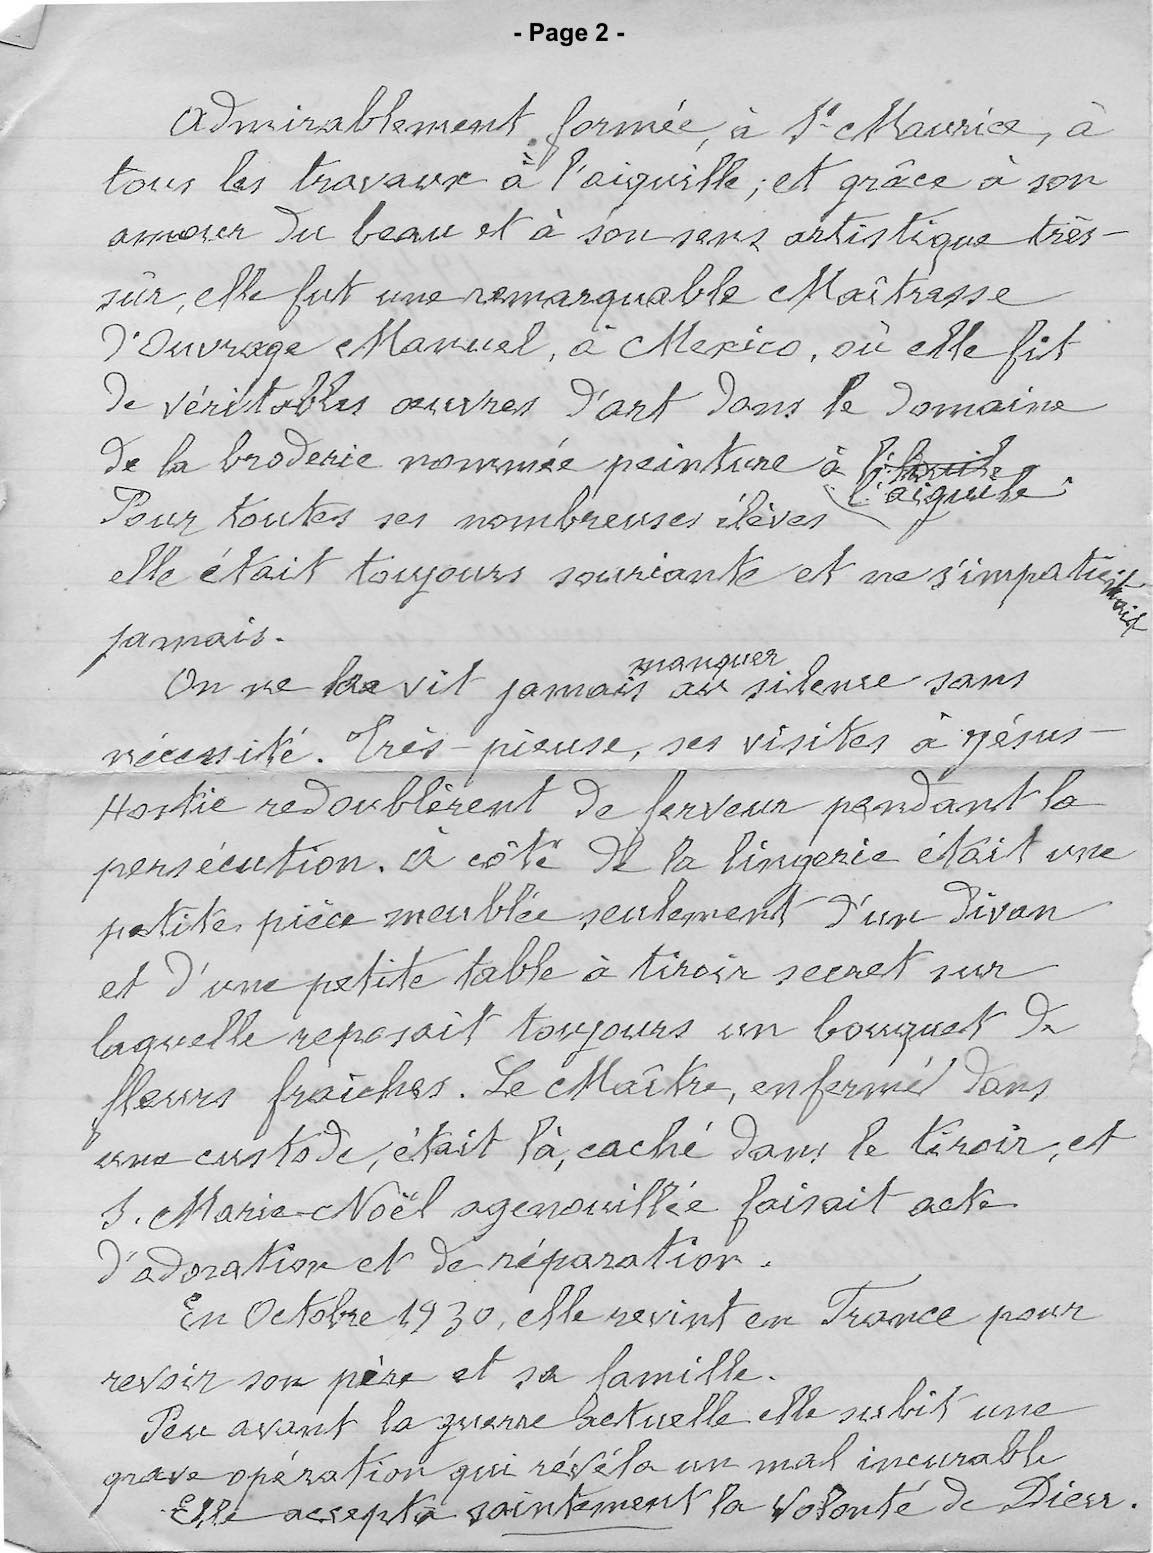 - Page 2 -
Admirablement formée, à St Maurice, à
tous les travaux à l'aiguille ; et grâce à son
amour du beau et à son sens artistique très-
sûr, elle fut une remarquable Maîtresse
d'Ouvrage Manuel, à Mexico, où elle fit
de véritables œuvres d'art dans le domaine
de la broderie nommée peinture à l'huile
l'aiguille.
Pour toutes ses nombreuses élèves
elle était toujours souriante et ne s'impatientait
jamais.
On ne la vit jamais manquer au silence sans
nécessité. Très-pieuse, ses visites à Jésus-
Hostie redoublèrent de ferveur pendant la
persécution. À côté de la lingerie était une
petite pièce meublée seulement d'un divan
et d'une petite table à tiroir secret sur
laquelle reposait toujours un bouquet de
fleurs fraîches. Le Maître, enfermé dans
une custode, était là, caché dans le tiroir, et
S. Marie-Noël agenouillée faisait acte
d'adoration et de réparation.
En Octobre 1930, elle revint en France pour
revoir son père et sa famille.
Peu avant la guerre actuelle elle subit une
grave opération qui révéla un mal incurable
Elle accepta saintement la Volonté de Dieu.